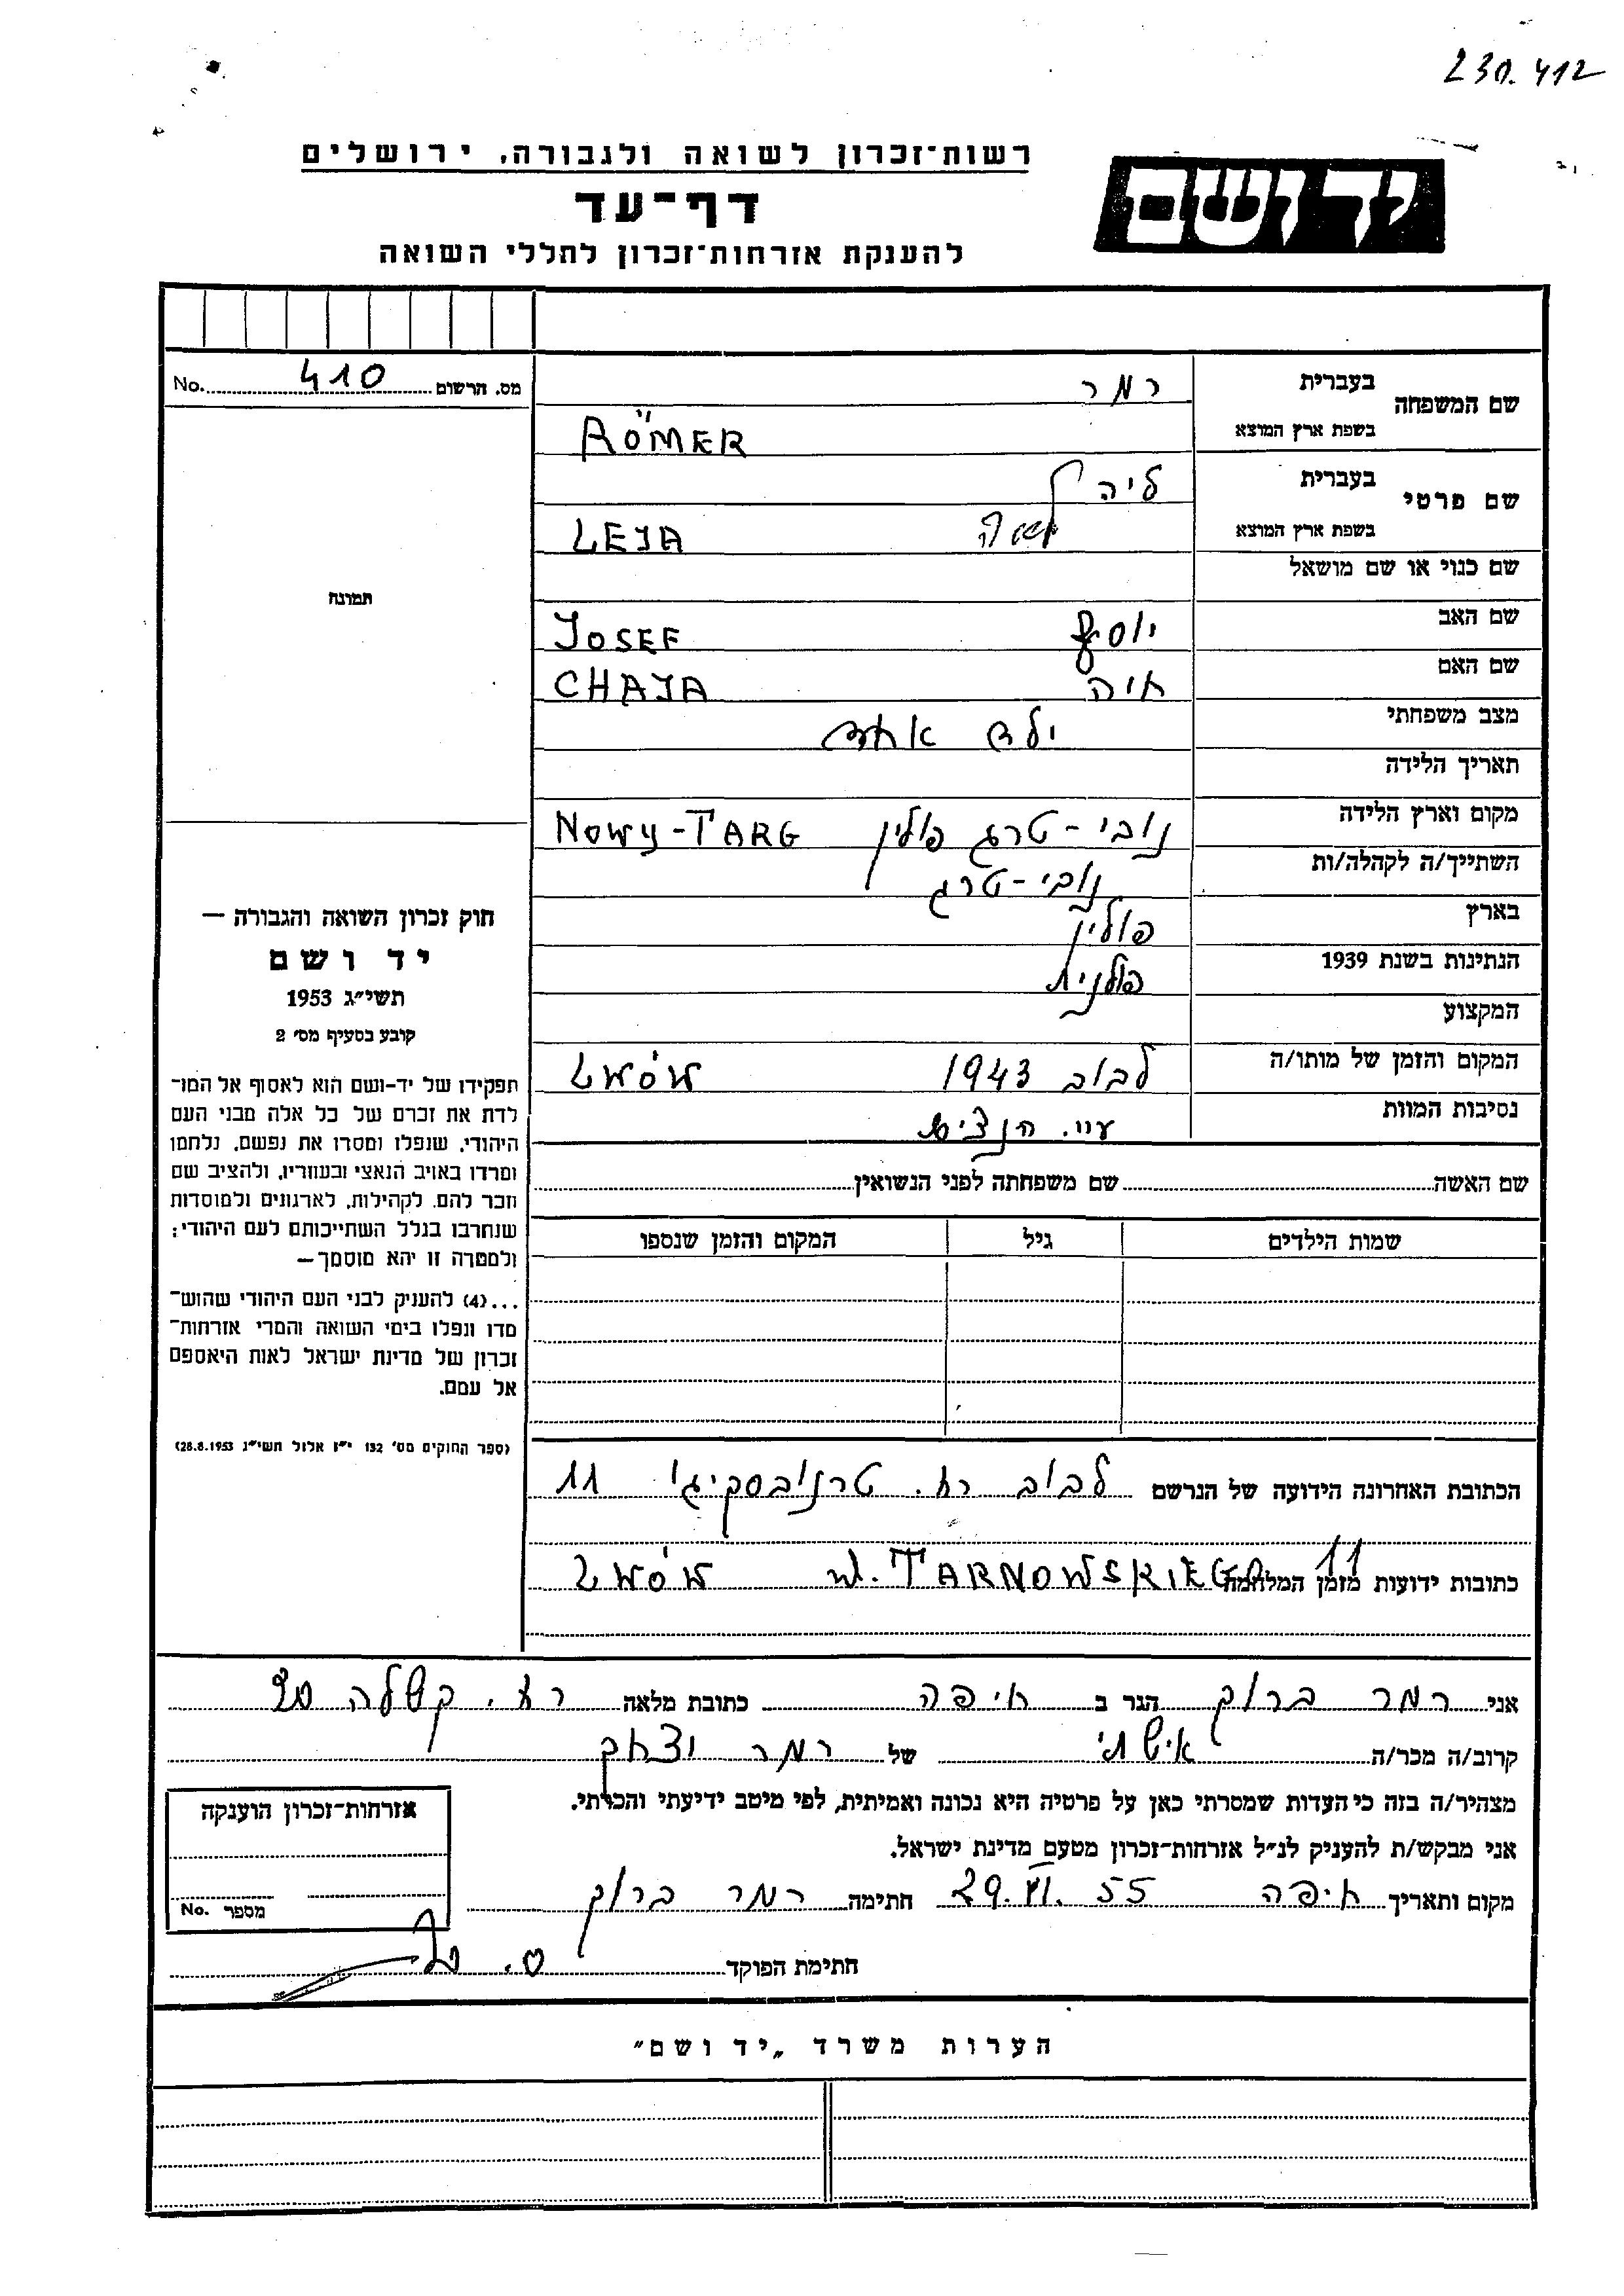 230.412
רשות־זכרון לשואה ולגבורה, ירושלים
יד ושם
דף־עד
להענקת אזרחות־זכרון לחללי השואה
מס. הרשום 410 No.
תמונה
שם המשפחה
בעברית רמר
בשפת ארץ המוצא RÖMER
שם פרטי
בעברית ליה
לאה
בשפת ארץ המוצא LEJA
שם כנוי או שם מושאל
שם האב יוסף JOSEF
שם האם חיה CHAJA
מצב משפחתי ילד אחד
תאריך הלידה
מקום וארץ הלידה נובי-טרג פולין NOWY-TARG
השתייך/ה לקהלה/ות נובי-טרג
בארץ פולין
הנתינות בשנת 1939 פולנית
המקצוע
המקום והזמן של מותו/ה לבוב 1943 LWÓW
נסיבות המוות ע״י הנצים
שם האשה שם משפחתה לפני הנשואין
שמות הילדים גיל המקום והזמן שנספו
חוק זכרון השואה והגבורה —
יד ושם
תשי״ג 1953
קובע בסעיף מס׳ 2
תפקידו של יד-ושם הוא לאסוף אל המו־
לדת את זכרם של כל אלה מבני העם
היהודי, שנפלו ומסרו את נפשם, נלחמו
ומרדו באויב הנאצי ובעוזריו, ולהציב שם
וזכר להם, לקהילות, לארגונים ולמוסדות
שנחרבו בגלל השתייכותם לעם היהודי;
ולמטרה זו יהא מוסמך—
...(4) להעניק לבני העם היהודי שהוש־
מדו ונפלו בימי השואה והמרי אזרחות־
זכרון של מדינת ישראל לאות היאספם
אל עמם.
(ספר החוקים מס׳ 132 י״ז אלול תשי״ג 28.8.1953)
הכתובת האחרונה הידועה של הנרשם לבוב רח. טרנובסקיגו 11
כתובות ידועות מזמן המלחמה LWÓW ul. TARNOWSKIEGO 11
אני רמר ברוך הגר ב חיפה כתובת מלאה רח.
קרוב/ה מכר/ה של רמר
מצהיר/ה בזה כי העדות שמסרתי כאן על פרטיה היא נכונה ואמיתית, לפי מיטב ידיעתי והכרתי.
אני מבקש/ת להעניק לנ״ל אזרחות־זכרון מטעם מדינת ישראל.
מקום ותאריך חיפה 29.VI.55 חתימה רמר ברוך
חתימת הפוקד
אזרחות־זכרון הוענקה
מספר No.
הערות משרד „יד ושם״